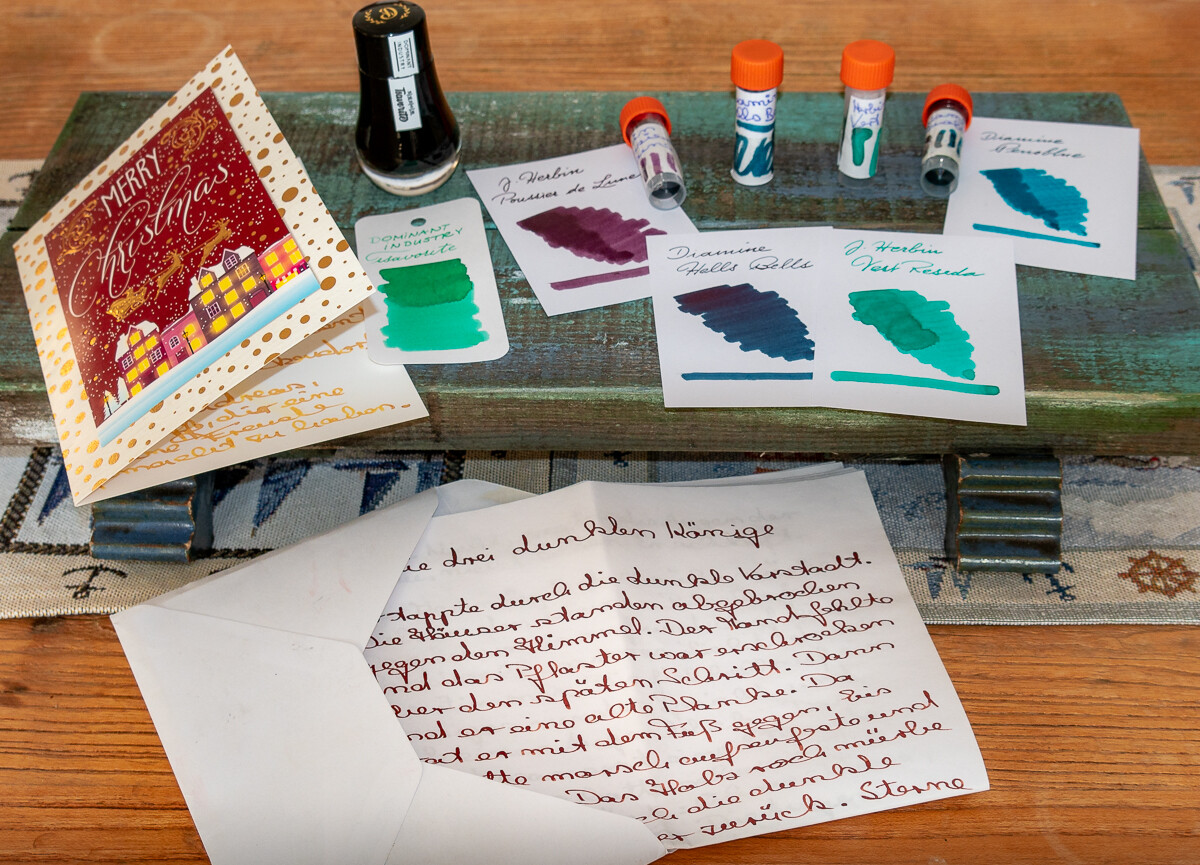 MERRY
Christmas
DOMINANT
INDUSTRY
favorite
DOMINANT
INDUSTRY
favorite
J. Herbin
Poussier de Lune
Herbin
Vert
Diamine
Hells Bells
J. Herbin
Vert Reseda
Diamine
eine
Freude
zu haben.
ie drei dunklen Könige
tappte durch die dunkle Vorstadt.
Die Häuser standen abgebrochen
gegen den Himmel. Der Mond fehlte
nd das Pflaster war erschrocken
ber den späten Schritt. Dann
nd er eine alte Planke. Da
at er mit dem Fuß gegen, bis
te morsch aufseufzte und
Das Holz roch mürbe
ch die dunkle
er zurück. Sterne